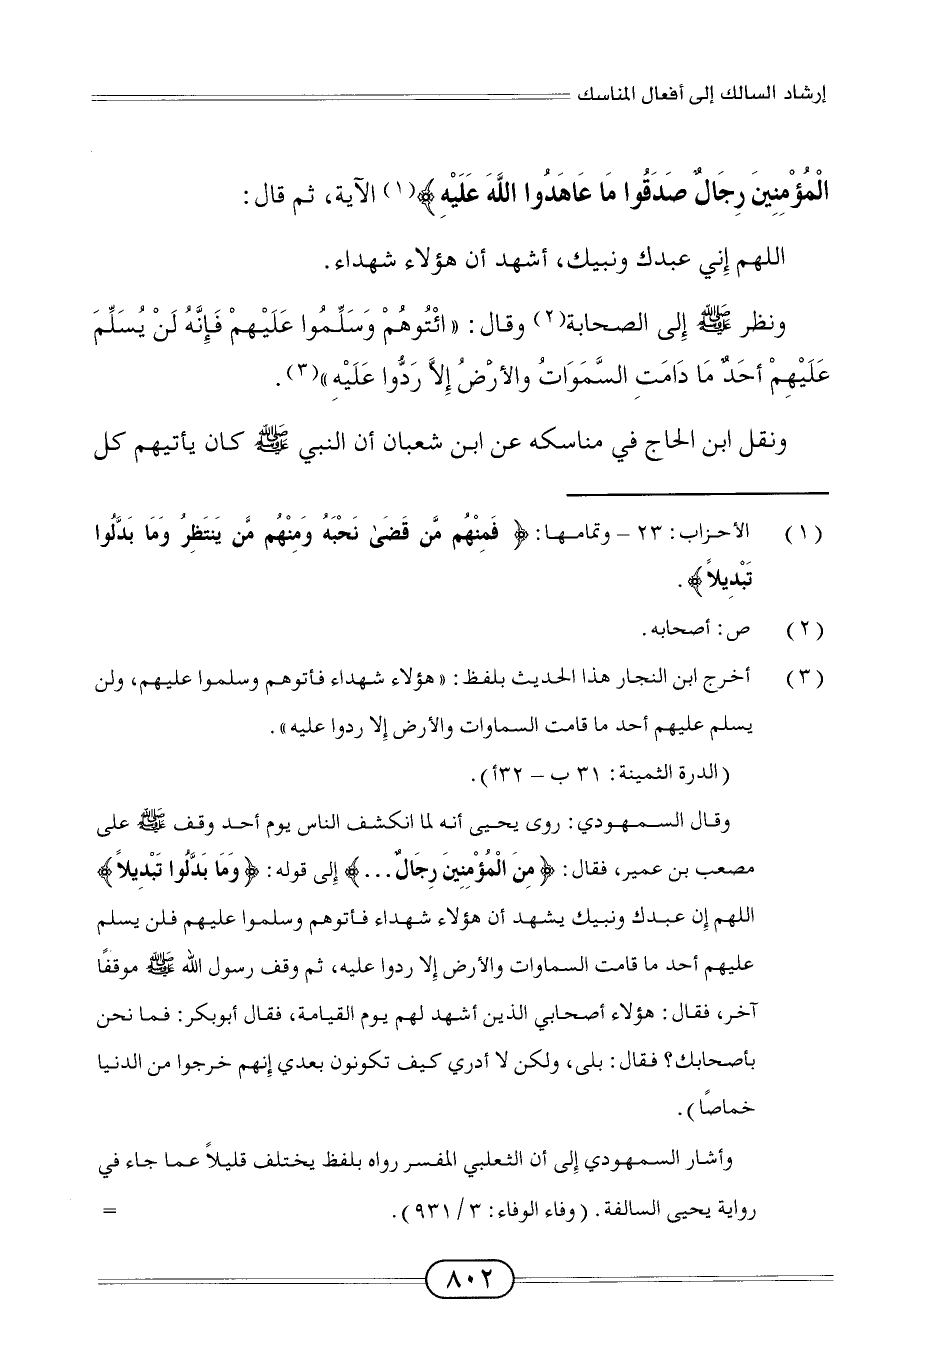 إرشاد السالك إلى أفعال المناسك
الْمُؤْمِنِينَ رِجَالٌ صَدَقُوا مَا عَاهَدُوا اللَّهَ عَلَيْهِ ﴾(١) الآية، ثم قال:
اللهم إني عبدك ونبيك، أشهد أن هؤلاء شهداء.
ونظر ﷺ إلى الصحابة(٢) وقال: «ائْتُوهُمْ وَسَلِّمُوا عَلَيْهِمْ فَإِنَّهُ لَنْ يُسَلِّمَ
عَلَيْهِمْ أَحَدٌ مَا دَامَتِ السَّمَوَاتُ والأَرْضُ إِلاَّ رَدُّوا عَلَيْهِ»(٣).
ونقل ابن الحاج في مناسكه عن ابن شعبان أن النبي ﷺ كان يأتيهم كل
(١) الأحزاب: ٢٣ – وتمامها: ﴿ فَمِنْهُم مَّن قَضَىٰ نَحْبَهُ وَمِنْهُم مَّن يَنتَظِرُ وَمَا بَدَّلُوا
تَبْدِيلاً ﴾.
(٢) ص: أصحابه.
(٣) أخرج ابن النجار هذا الحديث بلفظ: «هؤلاء شهداء فأتوهم وسلموا عليهم، ولن
يسلم عليهم أحد ما قامت السماوات والأرض إلا ردوا عليه».
(الدرة الثمينة: ٣١ ب – ٣٢أ).
وقال السمهودي: روى يحيى أنه لما انكشف الناس يوم أحد وقف ﷺ على
مصعب بن عمير، فقال: ﴿ مِنَ الْمُؤْمِنِينَ رِجَالٌ ... ﴾ إلى قوله: ﴿ وَمَا بَدَّلُوا تَبْدِيلاً ﴾
اللهم إن عبدك ونبيك يشهد أن هؤلاء شهداء فأتوهم وسلموا عليهم فلن يسلم
عليهم أحد ما قامت السماوات والأرض إلا ردوا عليه، ثم وقف رسول الله ﷺ موقفًا
آخر، فقال: هؤلاء أصحابي الذين أشهد لهم يوم القيامة، فقال أبوبكر: فما نحن
بأصحابك؟ فقال: بلى، ولكن لا أدري كيف تكونون بعدي إنهم خرجوا من الدنيا
خماصًا).
وأشار السمهودي إلى أن الثعلبي المفسر رواه بلفظ يختلف قليلاً عما جاء في
رواية يحيى السالفة. (وفاء الوفاء: ٣/ ٩٣١). =
٨٠٢